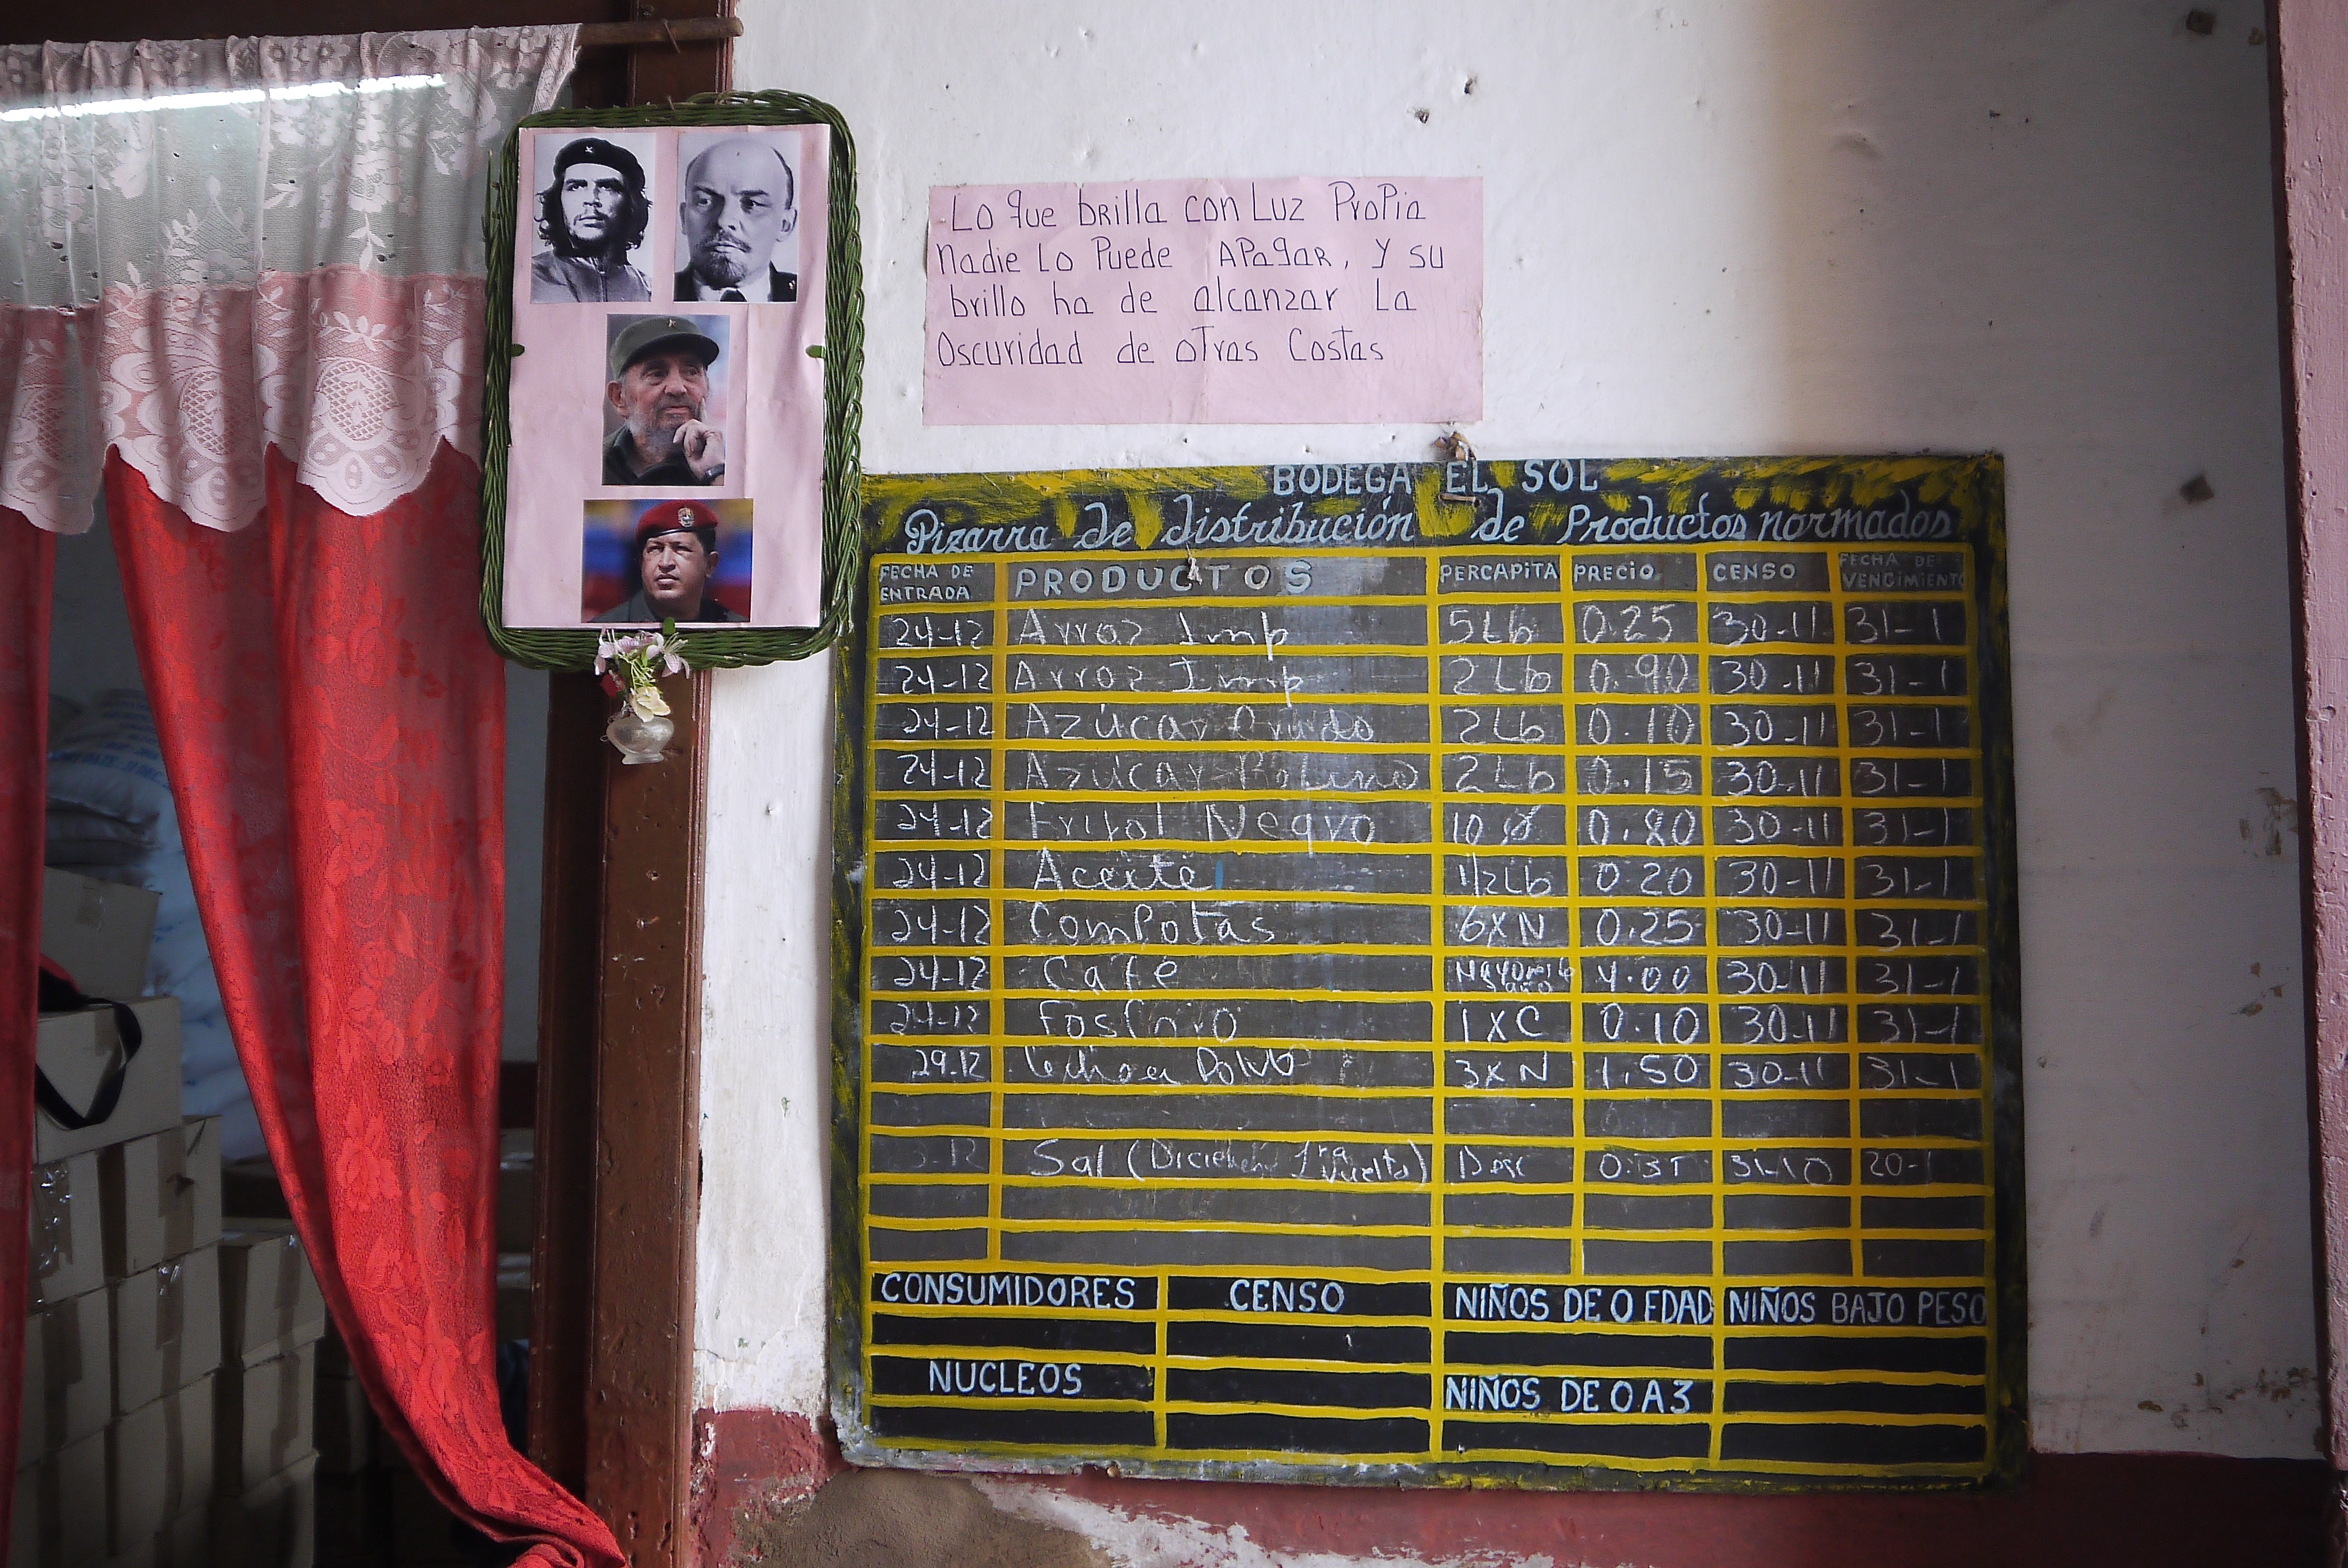 Lo que brilla con Luz Propia
Nadie Lo Puede APagar, y su
brillo ha de alcanzar La
Oscuridad de otras Costas
BODEGA EL SOL
Pizarra de distribución de Productos normados
FECHA DE ENTRADA PRODUCTOS PERCAPITA PRECIO CENSO FECHA DE VENCIMIENTO
24-12 Arroz Imp 5Lb 0.25 30-11 31-1
24-12 Arroz Imp 2Lb 0.90 30-11 31-1
24-12 Azúcar Crudo 2Lb 0.10 30-11 31-1
24-12 Azúcar Refino 2Lb 0.15 30-11 31-1
24-12 Frijol Negro 10 0.80 30-11 31-1
24-12 Aceite 1/2Lb 0.20 30-11 31-1
24-12 ComPotas 6XN 0.25 30-11 31-1
24-12 Café 4.00 30-11 31-1
24-12 Fosforo 1XC 0.10 30-11 31-1
29.12 Polvo 3XN 1.50 30-11 31-1
Sal (1ra Vuelta) 31-10 20-1
CONSUMIDORES CENSO NIÑOS DE 0 EDAD NIÑOS BAJO PESO
NUCLEOS NIÑOS DE 0 A 3